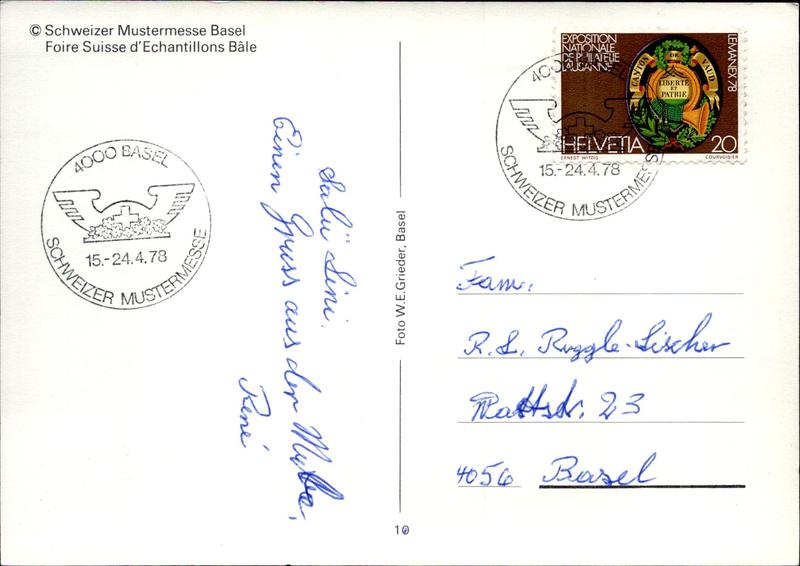 © Schweizer Mustermesse Basel
Foire Suisse d'Echantillons Bâle
4000 BASEL
15.-24.4.78
SCHWEIZER MUSTERMESSE
Salü Sini.
Einen Gruss aus der Muba.
René
Foto W.E. Grieder, Basel
10
EXPOSITION
NATIONALE
DE PHILATELIE
LAUSANNE
LEMANEX 78
CANTON DE VAUD
LIBERTÉ
ET
PATRIE
HELVETIA 20
ERNEST WITZIG COURVOISIER
4000 BASEL
15.-24.4.78
SCHWEIZER MUSTERMESSE
Fam.
R. L. Ruggle-Lischer
23
4056 Basel